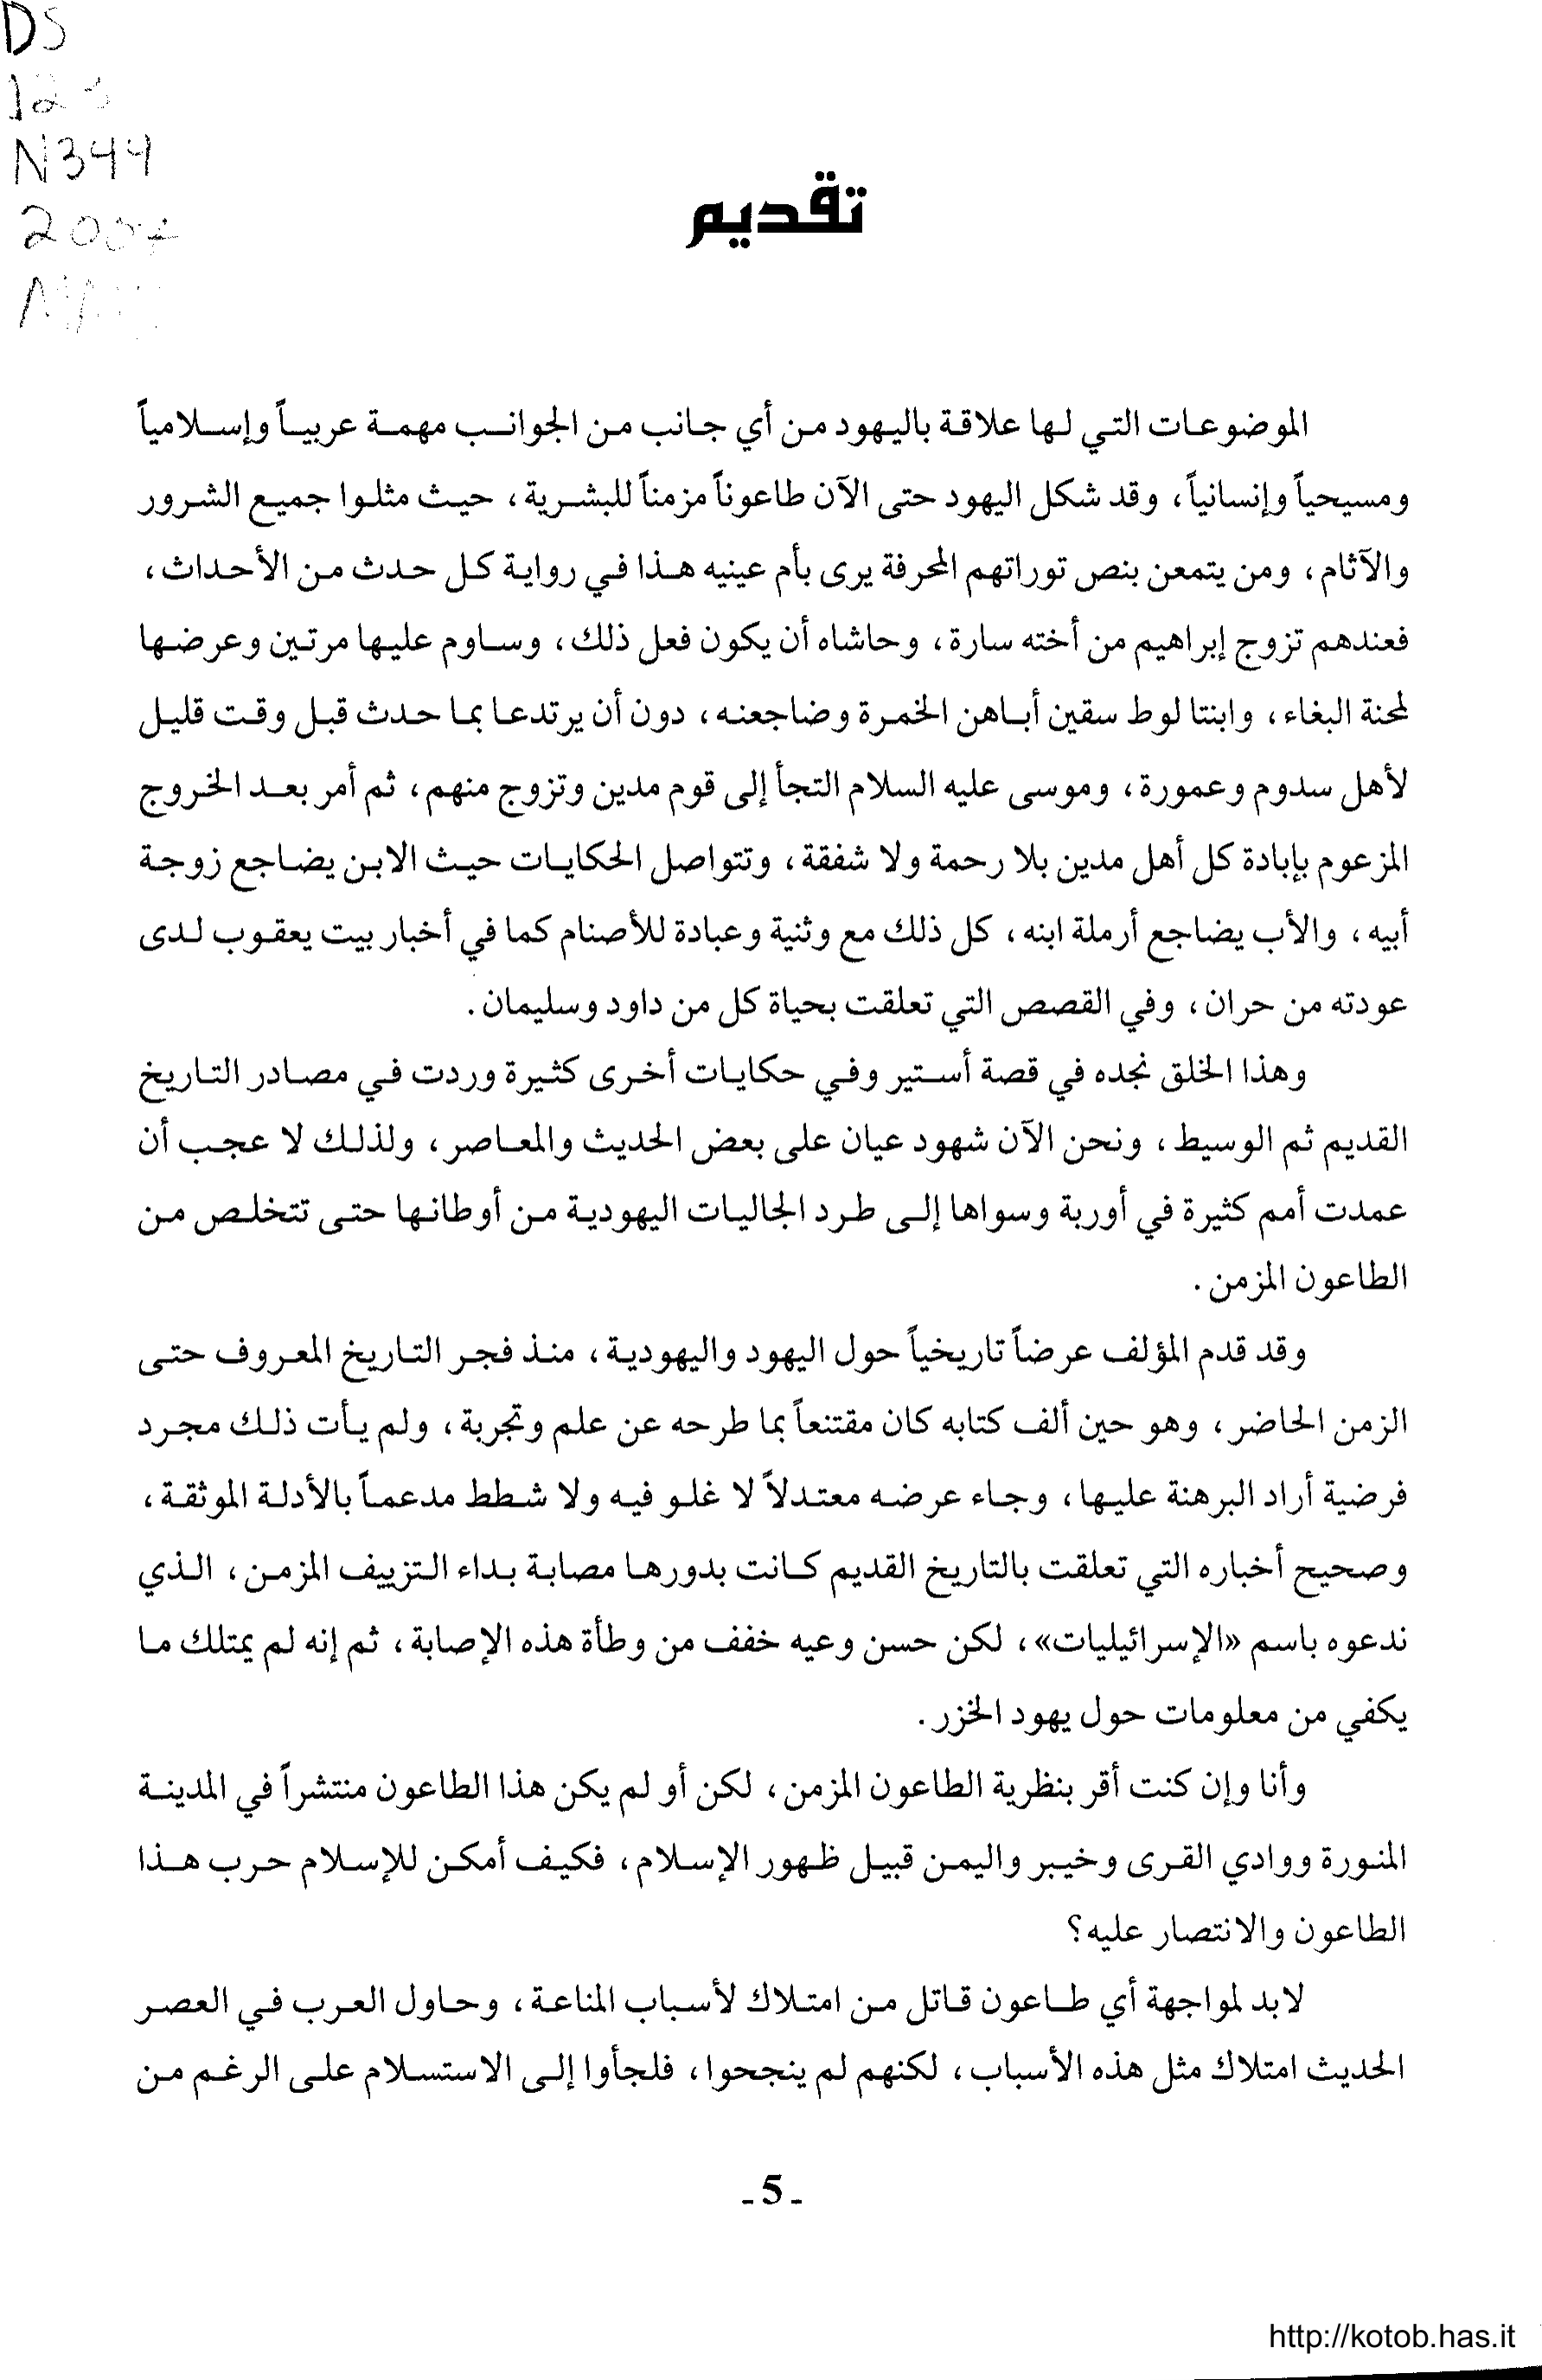 DS
N344
تقديم
الموضوعات التي لها علاقة باليهود من أي جانب من الجوانب مهمة عربياً وإسلامياً
ومسيحياً وإنسانياً، وقد شكل اليهود حتى الآن طاعوناً مزمناً للبشرية، حيث مثلوا جميع الشرور
والآثام، ومن يتمعن بنص توراتهم المحرفة يرى بأم عينيه هذا في رواية كل حدث من الأحداث،
فعندهم تزوج إبراهيم من أخته سارة، وحاشاه أن يكون فعل ذلك، وساوم عليها مرتين وعرضها
لمحنة البغاء، وابنتا لوط سقين أباهن الخمرة وضاجعنه، دون أن يرتدعا بما حدث قبل وقت قليل
لأهل سدوم وعمورة، وموسى عليه السلام التجأ إلى قوم مدين وتزوج منهم، ثم أمر بعد الخروج
المزعوم بإبادة كل أهل مدين بلا رحمة ولا شفقة، وتتواصل الحكايات حيث الابن يضاجع زوجة
أبيه، والأب يضاجع أرملة ابنه، كل ذلك مع وثنية وعبادة للأصنام كما في أخبار بيت يعقوب لدى
عودته من حران، وفي القصص التي تعلقت بحياة كل من داود وسليمان.
وهذا الخلق نجده في قصة أستير وفي حكايات أخرى كثيرة وردت في مصادر التاريخ
القديم ثم الوسيط، ونحن الآن شهود عيان على بعض الحديث والمعاصر، ولذلك لا عجب أن
عمدت أمم كثيرة في أوربة وسواها إلى طرد الجاليات اليهودية من أوطانها حتى تتخلص من
الطاعون المزمن.
وقد قدم المؤلف عرضاً تاريخياً حول اليهود واليهودية، منذ فجر التاريخ المعروف حتى
الزمن الحاضر، وهو حين ألف كتابه كان مقتنعاً بما طرحه عن علم وتجربة، ولم يأت ذلك مجرد
فرضية أراد البرهنة عليها، وجاء عرضه معتدلاً لا غلو فيه ولا شطط مدعماً بالأدلة الموثقة،
وصحيح أخباره التي تعلقت بالتاريخ القديم كانت بدورها مصابة بداء التزييف المزمن، الذي
ندعوه باسم «الإسرائيليات»، لكن حسن وعيه خفف من وطأة هذه الإصابة، ثم إنه لم يمتلك ما
يكفي من معلومات حول يهود الخزر.
وأنا وإن كنت أقر بنظرية الطاعون المزمن، لكن أو لم يكن هذا الطاعون منتشراً في المدينة
المنورة ووادي القرى وخيبر واليمن قبيل ظهور الإسلام، فكيف أمكن للإسلام حرب هذا
الطاعون والانتصار عليه؟
لابد لمواجهة أي طاعون قاتل من امتلاك لأسباب المناعة، وحاول العرب في العصر
الحديث امتلاك مثل هذه الأسباب، لكنهم لم ينجحوا، فلجأوا إلى الاستسلام على الرغم من
-5-
http://kotob.has.it